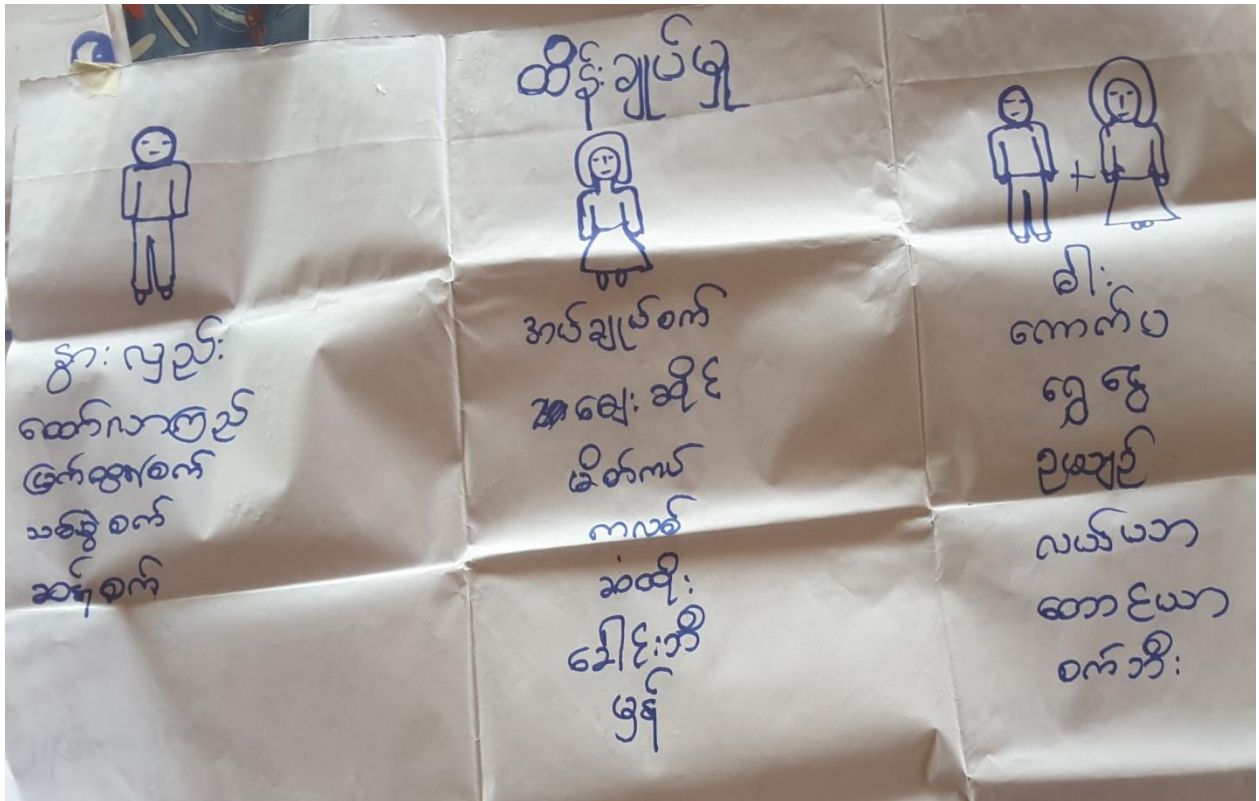 ထိန်းချုပ်မှု
နွားလှည်း
ထော်လာကြည်
မြက်ထွန်စက်
သစ်ခွဲစက်
ဆန်စက်
အပ်ချုပ်စက်
ဈေးဆိုင်
မိတ်ကပ်
ကလစ်
ဆံထိုး
ခေါင်းဘီး
မှန်
ဓါး
ကောက်ပ
ရွှေငွေ
ဥယျာဉ်
လယ်ယာ
တောင်ယာ
စက်ဘီး